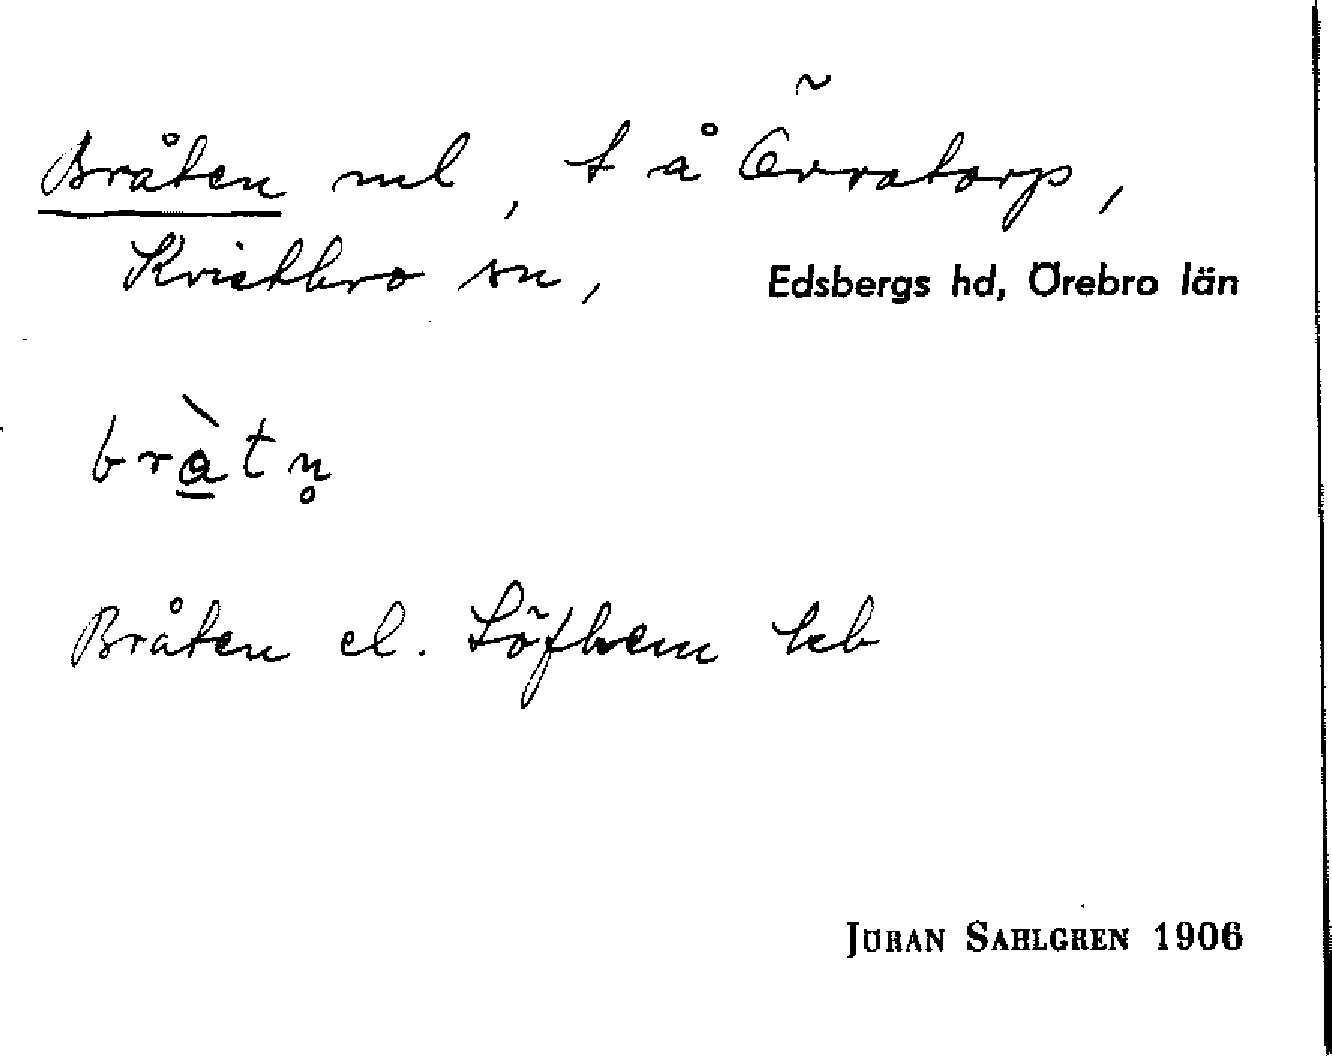 Bråten ml, t å Övratorp,
Kvistbro sn, Edsbergs hd, Örebro län
bràtn̥
Bråten el. Löfhem hb
JÖRAN SAHLGREN 1906